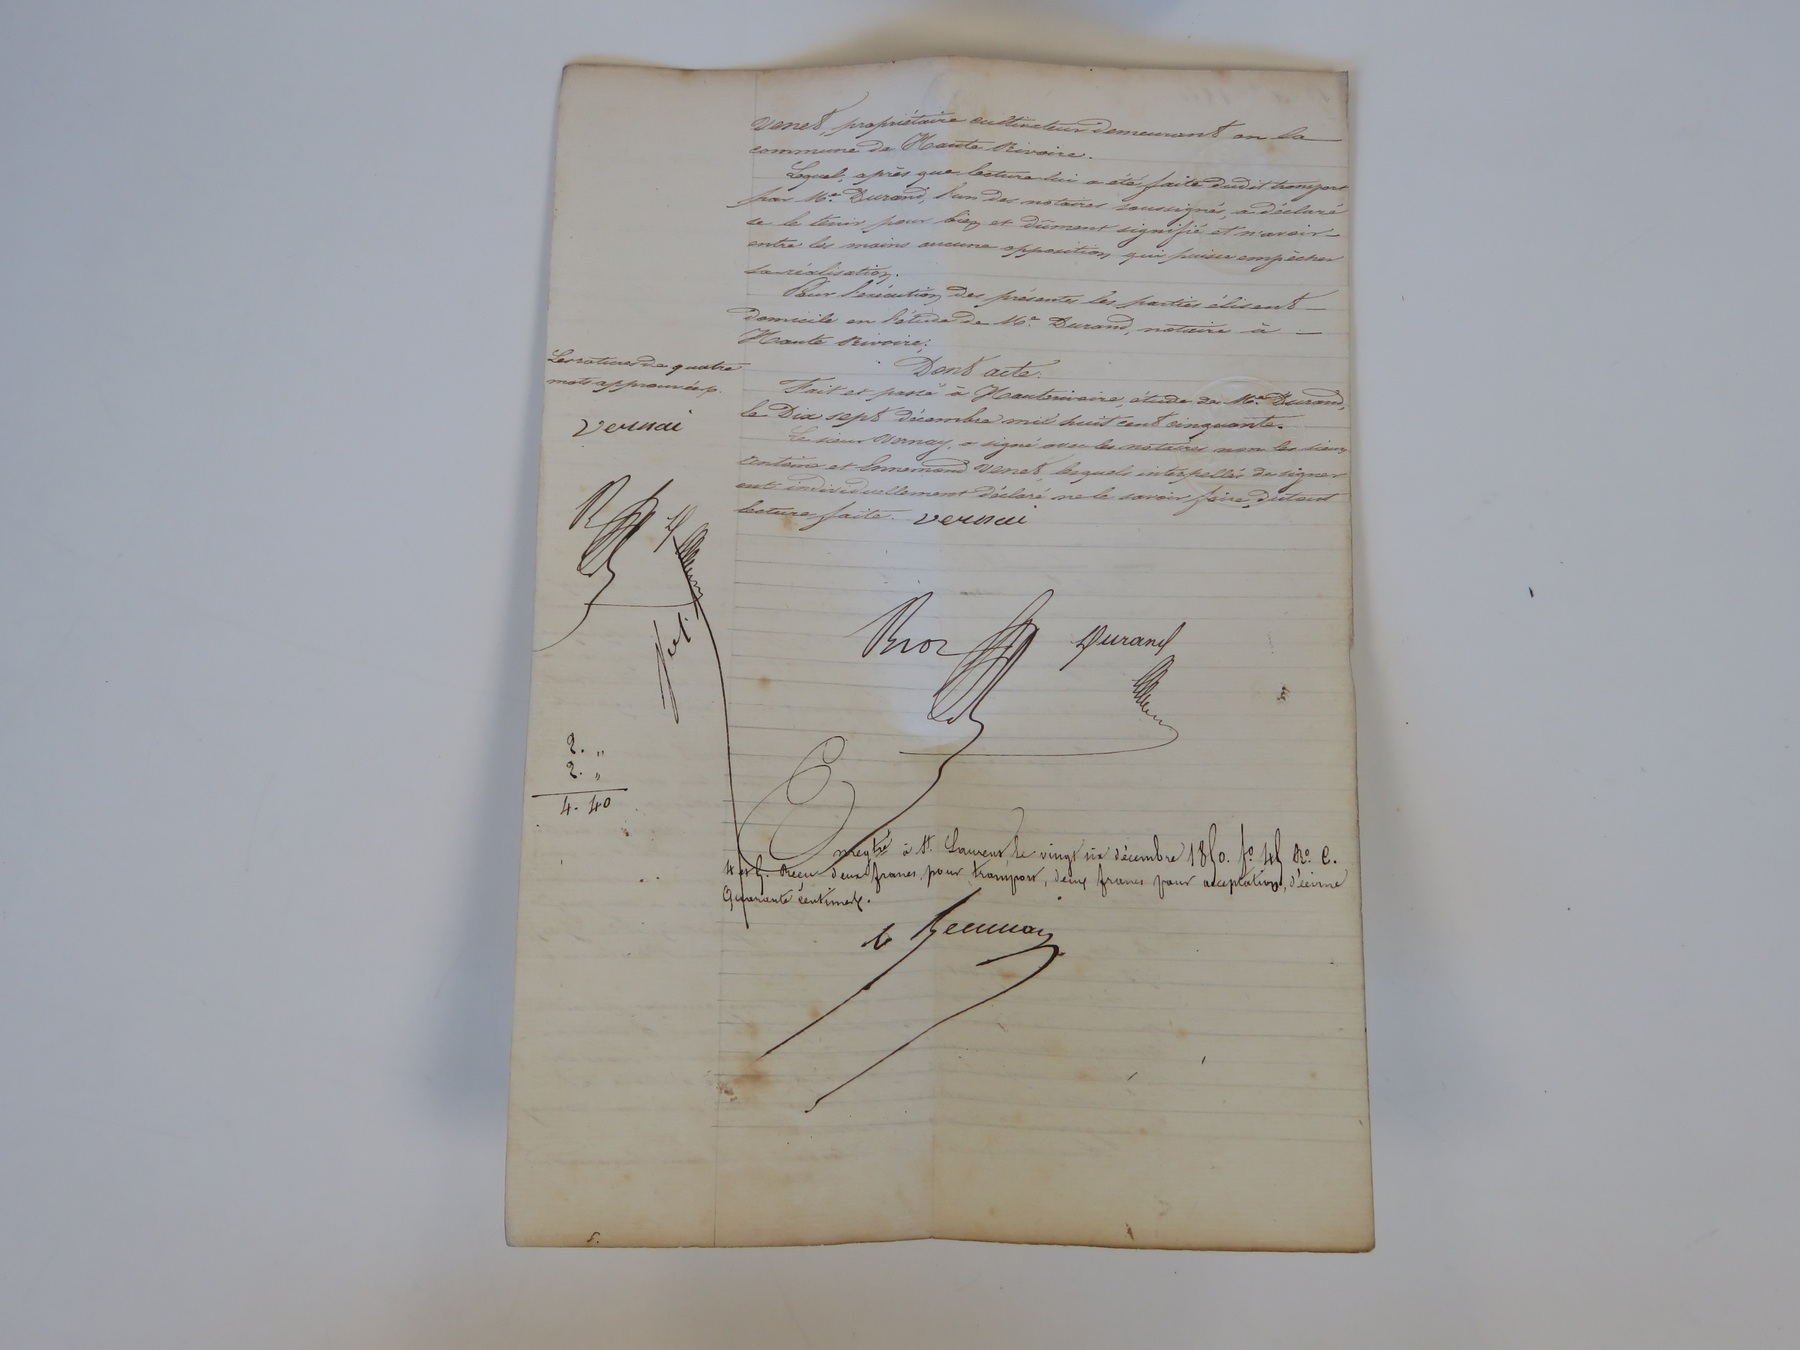 Venet, propriétaire cultivateur demeurant en la
commune de Haute Rivoire.
Lequel, après que lecture lui a été faite dudit transport
par Me. Durand, l'un des notaires soussignés, a déclaré
se le tenir pour bien et dûment signifié et n'avoir
entre les mains aucune opposition qui puisse empêcher
sa réalisation.
Pour l'exécution des présentes les parties élisent
domicile en l'étude de Me. Durand, notaire à
Haute Rivoire.
Dont acte.
Fait et passé à Hauterivoire, étude de Me. Durand,
le Dix sept décembre mil huit cent cinquante.
Le sieur Vernay, a signé avec les notaires non les sieurs
Antoine et Ennemond Venet, lesquels interpellés de signer
ont individuellement déclaré ne le savoir faire, du tout
lecture faite. vernai
de quatre
mots approuvée
vernai
Durand
2. "
2. "
4. 40
Enregtré à St. Laurent le vingt six décembre 1850. fo. 45 Ro. C.
4 et 5. Reçu deux francs pour transport, deux francs pour acceptation, décime
Quarante centimes.